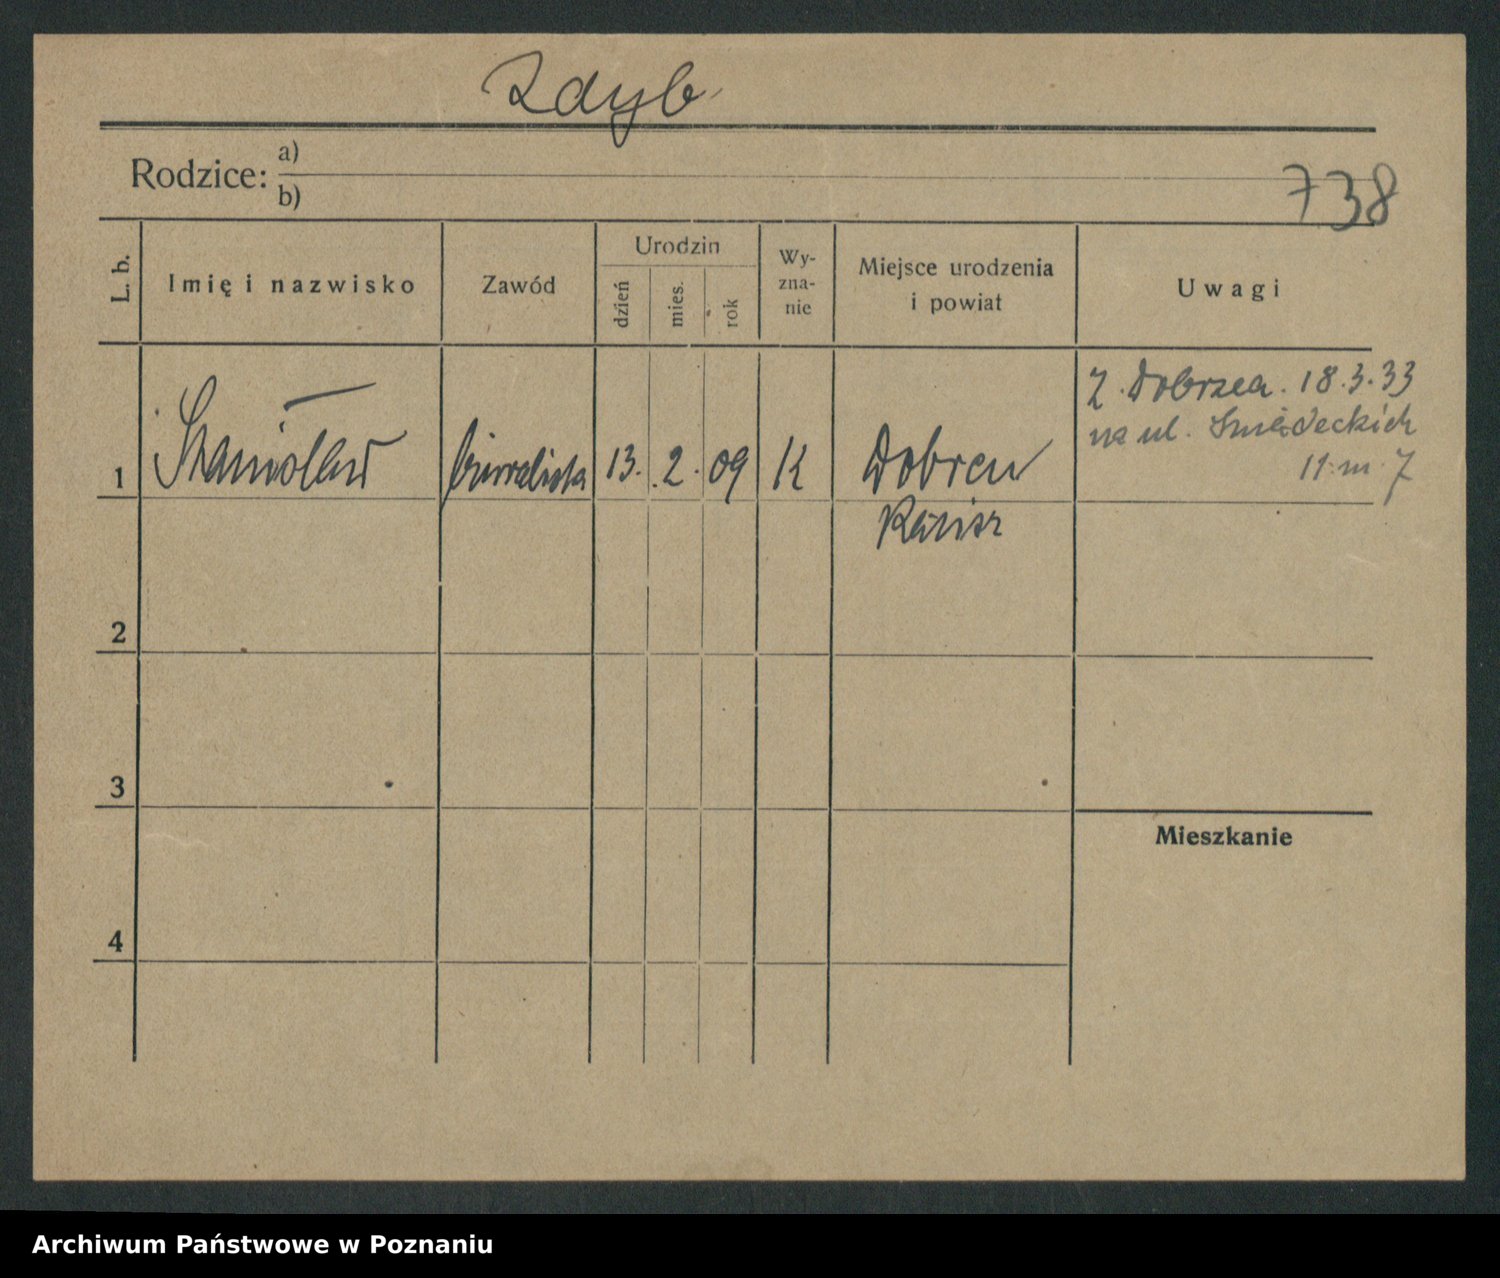 Zdyb
Rodzice: a)
b)
738
L. b.
Imię i nazwisko
Zawód
Urodzin
dzień
mies.
rok
Wy-
zna-
nie
Miejsce urodzenia
i powiat
Uwagi
1
Stanisław
biuralista
13. 2. 09
K
Dobrzec
Kalisz
Z. Dobrzea. 18.3.33
na ul. Śniadeckich
11 m 7
2
3
4
Mieszkanie
Archiwum Państwowe w Poznaniu